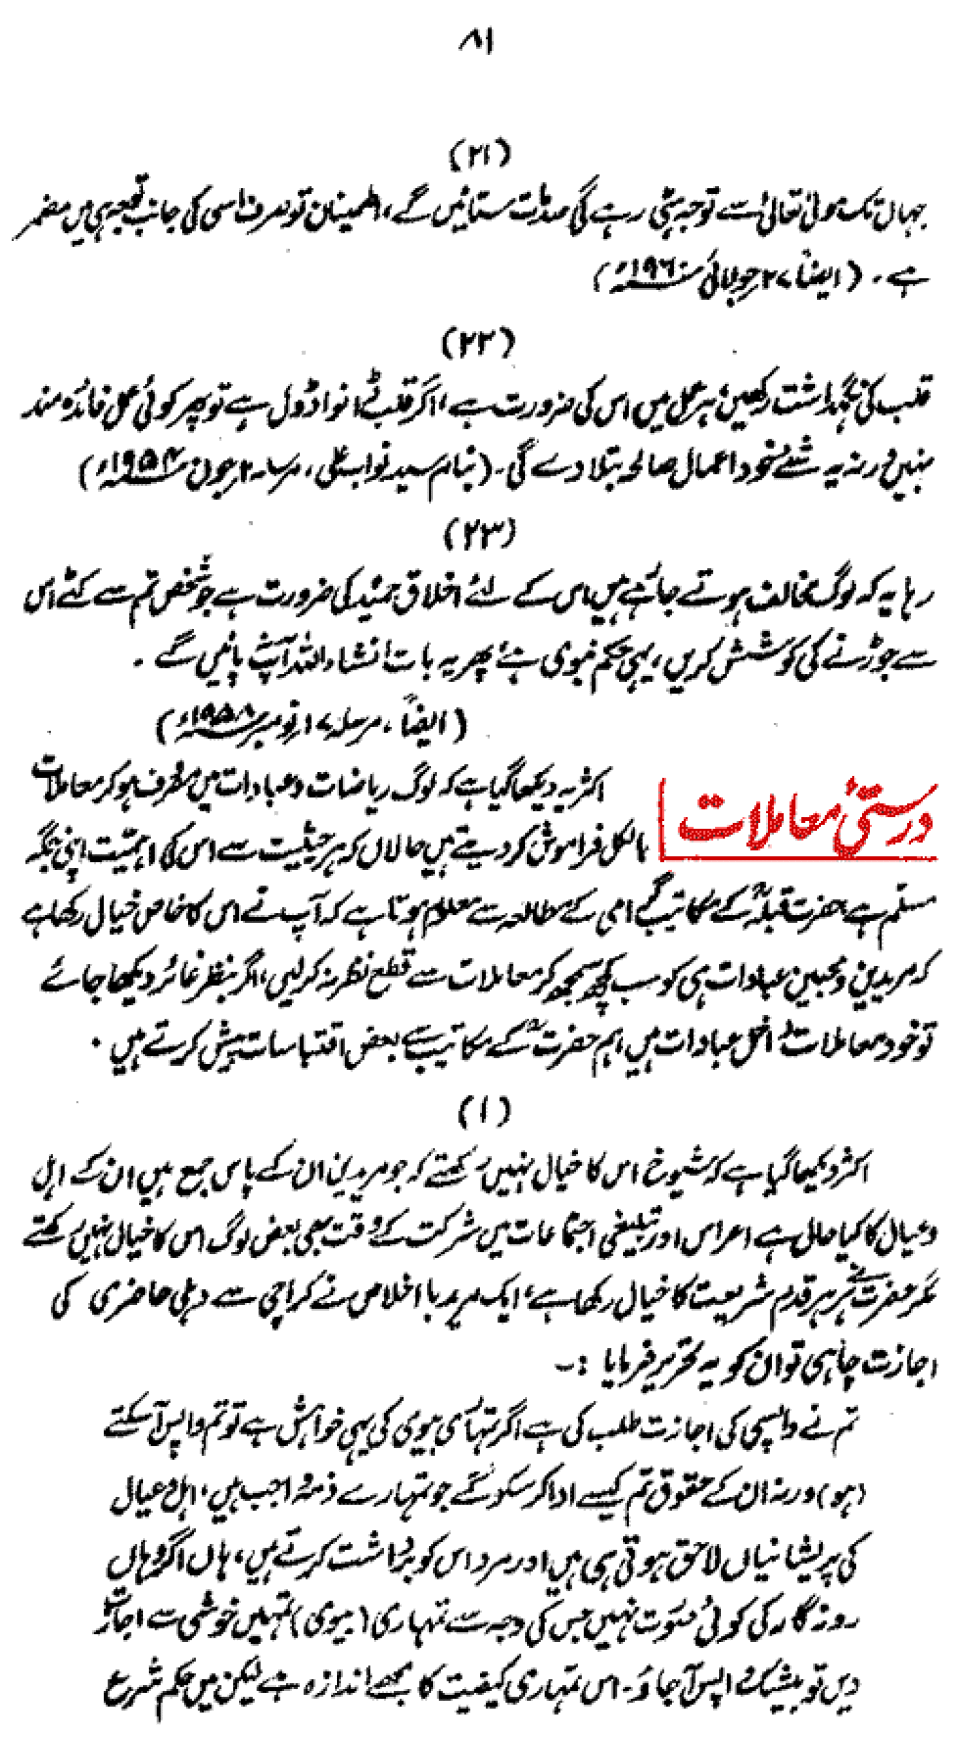 ۸۱
(۲۱)
جہاں تک مولیٰ تعالیٰ سے توجہ ہٹی رہے گی صدمات ستائیں گے، اطمینان تو صرف اسی کی جانب توجہ ہی میں مضمر
ہے۔ (ایضاً ۲۷ جولائی ۱۹۶۰ء)
(۲۲)
قلب کی نگہداشت رکھیں، ہر عمل میں اس کی ضرورت ہے، اگر قلب ڈانواڈول ہے تو پھر کوئی عمل فائدہ مند
نہیں ورنہ یہ شئے خود اعمال صالحہ بتلا دے گی۔ (بنام سید نواب علی، مرسلہ ۲ جون ۱۹۵۴ء)
(۲۳)
رہا یہ کہ لوگ مخالف ہوتے جاتے ہیں اس کے لئے اخلاق حمیدہ کی ضرورت ہے جو شخص تم سے کٹے اس
سے جوڑنے کی کوشش کریں، یہی حکم نبوی ہے پھر یہ بات انشاء اللہ آپ نہ پائیں گے۔
(ایضاً، مرسلہ ۱۷ نومبر ۱۹۵۸ء)
درستیٔ معاملات
اکثر یہ دیکھا گیا ہے کہ لوگ ریاضات و عبادات میں مصروف ہو کر معاملات
بالکل فراموش کر دیتے ہیں حالاں کہ ہر حیثیت سے اس کی اہمیت اپنی جگہ
مسلّم ہے، حضرت قبلہؒ کے مکاتیب گرامی کے مطالعہ سے معلوم ہوتا ہے کہ آپ نے اس کا خاص خیال رکھا ہے
کہ مریدین و محبین عبادات ہی کو سب کچھ سمجھ کر معاملات سے قطع نظر نہ کرلیں، اگر بنظر غائر دیکھا جائے
تو خود معاملات داخل عبادات ہیں، ہم حضرتؒ کے مکاتیب سے بعض اقتباسات پیش کرتے ہیں۔
(۱)
اکثر دیکھا گیا ہے کہ شیوخ اس کا خیال نہیں رکھتے کہ جو مریدین ان کے پاس جمع ہیں ان کے اہل
و عیال کا کیا حال ہے، اعراس اور تبلیغی اجتماعات میں شرکت کے وقت بھی بعض لوگ اس کا خیال نہیں رکھتے
مگر حضرت نے ہر ہر قدم شریعت کا خیال رکھا ہے، ایک مرید با اخلاص نے کراچی سے دہلی حاضری کی
اجازت چاہی تو ان کو یہ تحریر فرمایا :۔
تم نے واپسی کی اجازت طلب کی ہے اگر تمہاری بیوی کی یہی خواہش ہے تو تم واپس آسکتے
(ہو) ورنہ ان کے حقوق تم کیسے ادا کر سکو گے جو تمہارے ذمہ واجب ہیں، اہل و عیال
کی پریشانیاں لاحق ہوتی ہی ہیں اور مرد اس کو برداشت کرتے ہیں، ہاں اگر وہاں
روزگار کی کوئی صورت نہیں جس کی وجہ سے تمہاری (بیوی) تمہیں خوشی سے اجازت
دیں تو بیشک واپس آجاؤ۔ اس تمہاری کیفیت کا مجھے اندازہ ہے لیکن میں حکم شرع